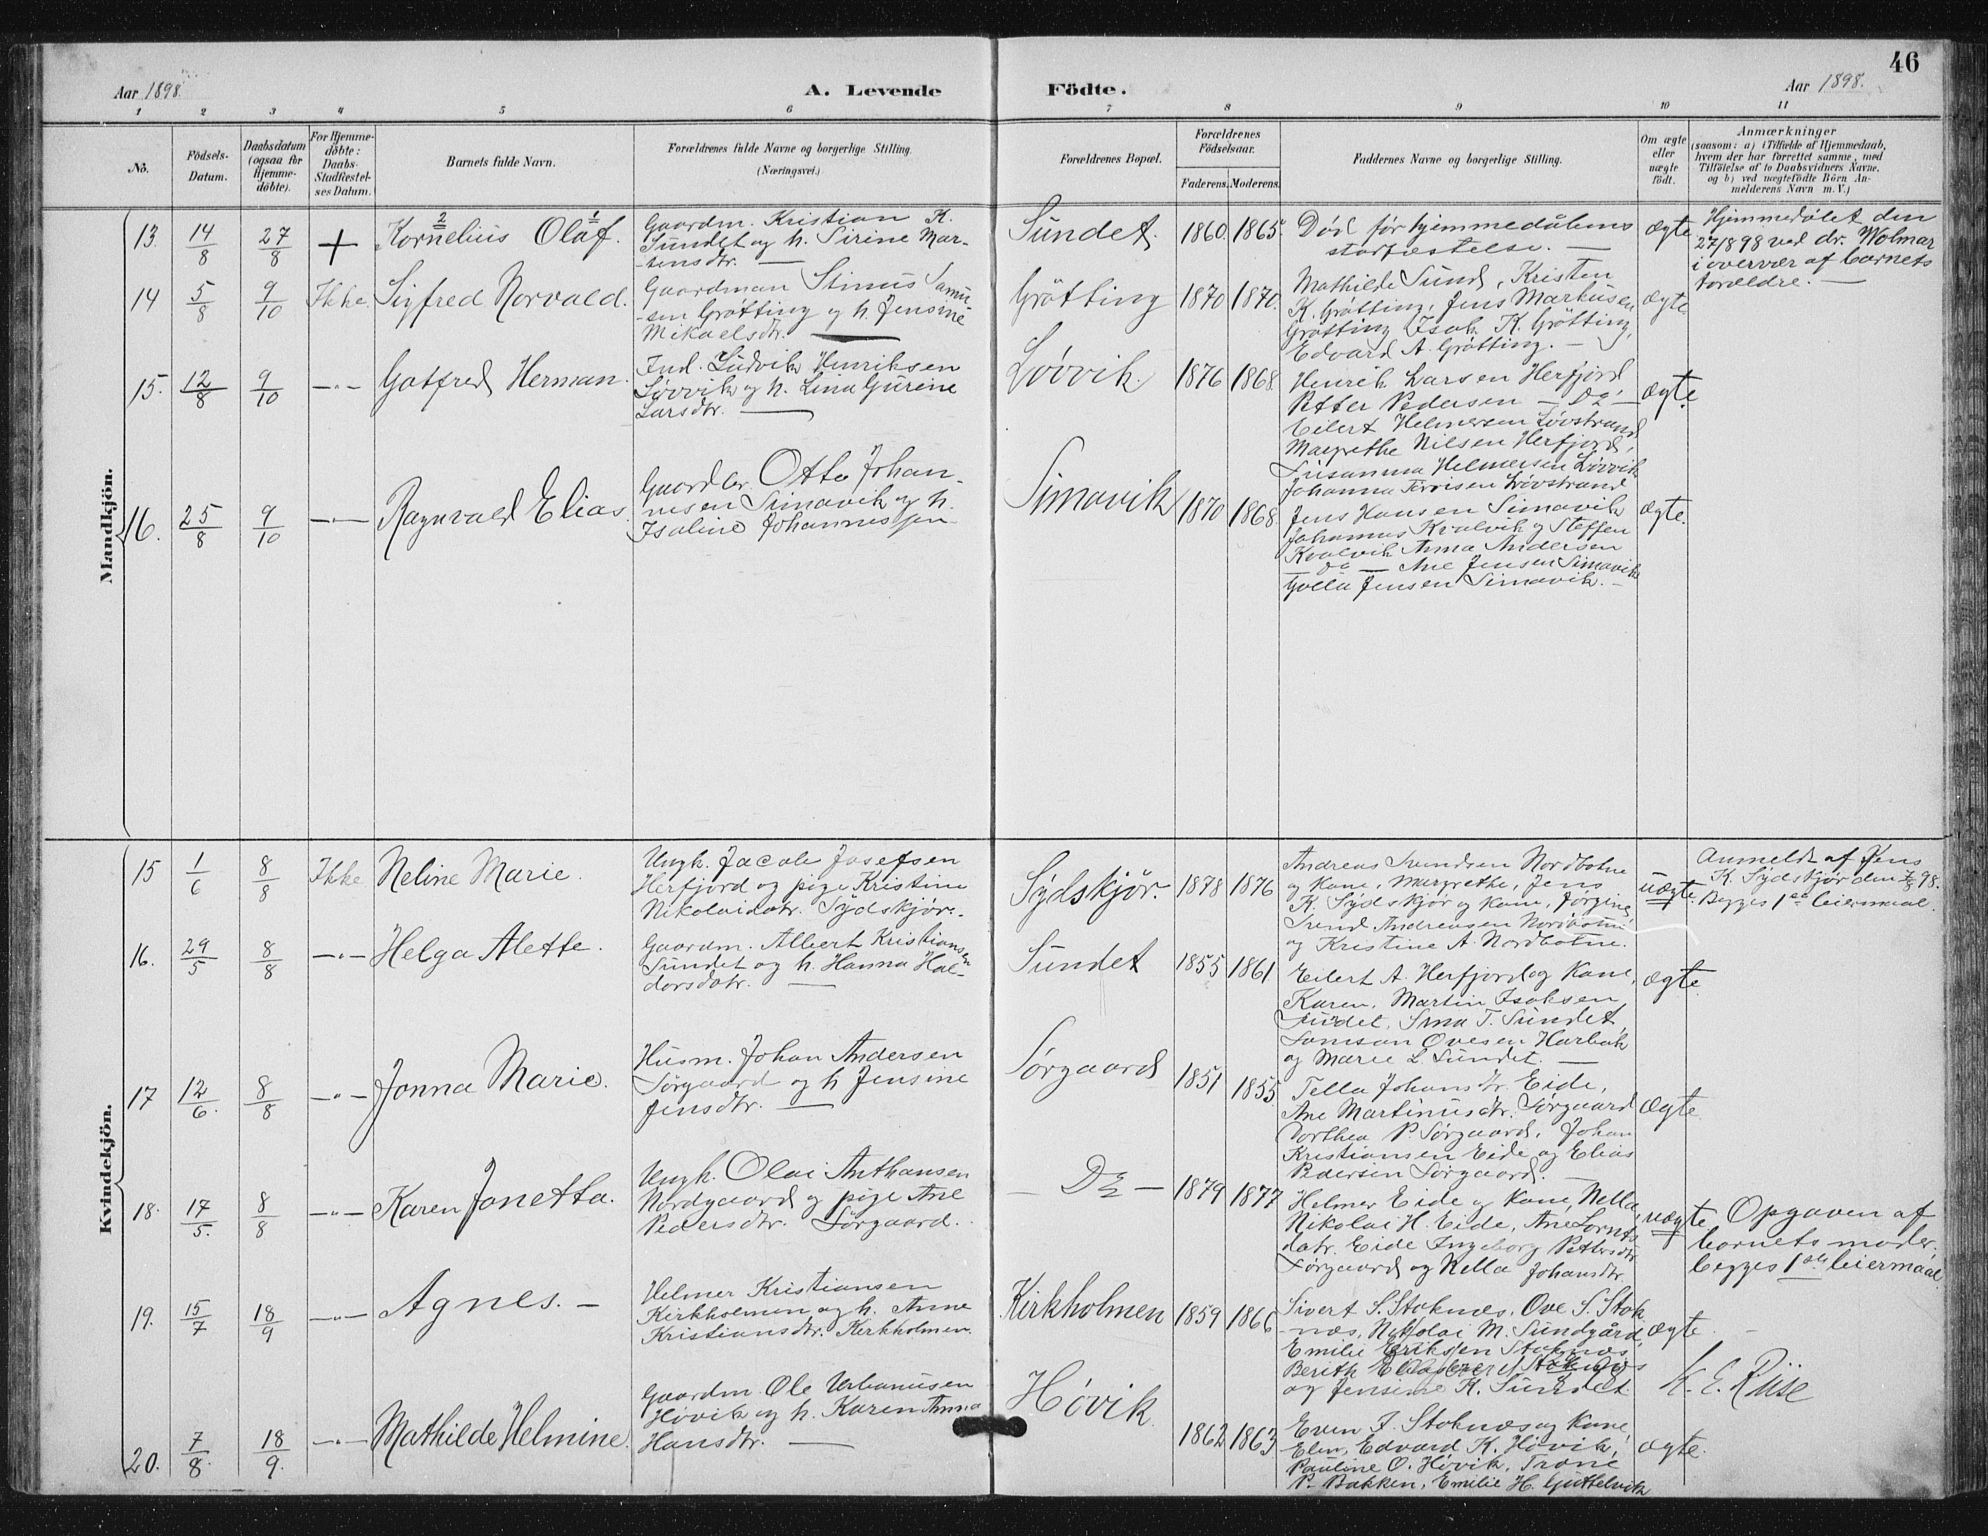 46
Aar 1898.
A. Levende
Födte.
Aar 1898.
1 2 3 4 5 6 7 8 9 10 11
No.
Födsels-
Datum.
Daabsdatum
(ogsaa for
Hjemme-
döbte).
For Hjemme-
döbte:
Daabs-
Stadfæstel-
ses Datum.
Barnets fulde Navn.
Forældrenes fulde Navne og borgerlige Stilling.
(Næringsvei.)
Forældrenes Bopæl.
Forældrenes
Födselsaar.
Faderens. Moderens.
Faddernes Navne og borgerlige Stilling.
Om ægte
eller
uægte
födt.
Anmærkninger
(saasom: a) i Tilfælde af Hjemmedaab,
hvem der har forrettet samme, med
Tilföielse af to Daabsvidners Navne,
og b) ved uægtefödte Börn An-
melderens Navn m. V.)
Mandkjön.
13. 14/8 27/8 + Kornelius Olaf.
2 1
Gaardm. Kristian K.
Sundet og h. Sirine Mar-
tinsdtr. —
Sundet. 1860. 1865.
Död för hjemmedåbens
stadfæstelse. —
ægte
Hjemmedøbt den
27/8 98 ved dr. Wolmar
i overvær af barnets
forældre. —
14 5/8 9/10 Ikke. Sigfred Norvald.
Gaardman Stinus Samu-
sen Grøtting og h. Jensine
Mikaelsdtr. —
Grøtting 1870 1870.
Mathilde Sund, Kristen
K. Grøtting, Jens Markusen
Grøtting Isak K. Grøtting,
Edvard A. Grøtting. —
ægte
15. 12/8 9/10 —"— Gotfred Herman.
Ind. Ludvik Henriksen
Løvvik og h. Lina Gurine
Larsdtr. —
Løvvik. 1876 1868.
Henrik Larsen Herfjord
Petter Pedersen — Do —
Eilert Helmersen Løvstrand
Margrethe Nilsen Herfjord,
Susanna Helmersen Løvvik
Johanna Løvstrand
ægte.
16. 25/8 9/10 —"— Ragnvald Elias.
Gaardbr. Otto Johan-
nesen Simavik og h.
Isaline Johannessen
Simavik 1870 1868.
Jens Hansen Simavik
Johannes Kvalvik og Steffen
Kvalvik Anna Andersen
— do — Ane Jensen Simavik
Jensen Simavik. —
ægte.
Kvindekjön.
15 1/6 8/8 Ikke Neline Marie.
Ungk. Jacob Josefsen
Herfjord og pige Kristine
Nikolaidatr. Sydskjør.
Sydskjør. 1878 1876
Andreas Svendsen Nordbotne
og Kone, Margrethe, Jens
K. Sydskjør og Kone, Jørgine,
Svend Andreasen Nordbotn
og Kristine A. Nordbotne.
uægte.
Anmeldt af Jens
K. Sydskjør den 7/8 98.
Begges 1ste leiermaal.
16. 29/5 8/8 —"— Helga Alette.
Gaardm. Albert Kristiansen
Sundet og h. Hanna Hal-
dorsdatr. —
Sundet 1855 1861
Eilert A. Herfjord og Kone,
Karen, Martin Isaksen
Sundet, T. Sundet,
Samson Ovesen Harbak
og Marie L Sundet. —
ægte.
17 12/6. 8/8 —"— Jonna Marie.
Husm. Johan Andersen
Sørgaard og h Jensine
Jensdtr. —
Sørgaard 1851 1855
Tella Johansdtr Eide,
Ane Martinusdtr. Sørgaard
Dorthea P. Sørgaard, Johan
Kristiansen Eide og Elias
Pedersen Sørgaard. —
ægte
18. 17/5. 8/8 —"— Karen Jonetta.
Ungk. Olai Anthonsen
Nordgaard og pige Ane
Pedersdtr. Sørgaard.
— Do — 1879 1877
Helmer Eide og Kone, Nella,
Nikolai H. Eide, Ane Lornts
datr. Eide Ingeborg Pettersdtr
Sørgaard og Kella Johansdtr.
uægte
Opgaven af
barnets moder.
begges 1ste leiermaal
19. 15/7 18/9 —"— Agnes. —
Helmer Kristiansen
Kirkholmen og h. Anne
Kristiansdtr. Kirkholmen.
Kirkholmen 1859 1866
Sivert S. Stoknæs, Ove S. Stok
-næs, Nikolai M. Sundgård,
Emilie Eriksen Stoknæs,
Berith Stoknæs
og Jensine K. Sundet.
ægte.
K. E. Riise
20. 7/8. 18/9. —"— Mathilde Helmine.
Gaardm. Ole Urbanusen
Høvik og h. Karen Anna
Hansdtr. —
Høvik. 1862 1863
Even J. Stoknæs og Kone,
Elen, Edvard K. Høvik,
Pauline O. Høvik, Trone
P. Bakken, Emilie H. Guttelvik
ægte.